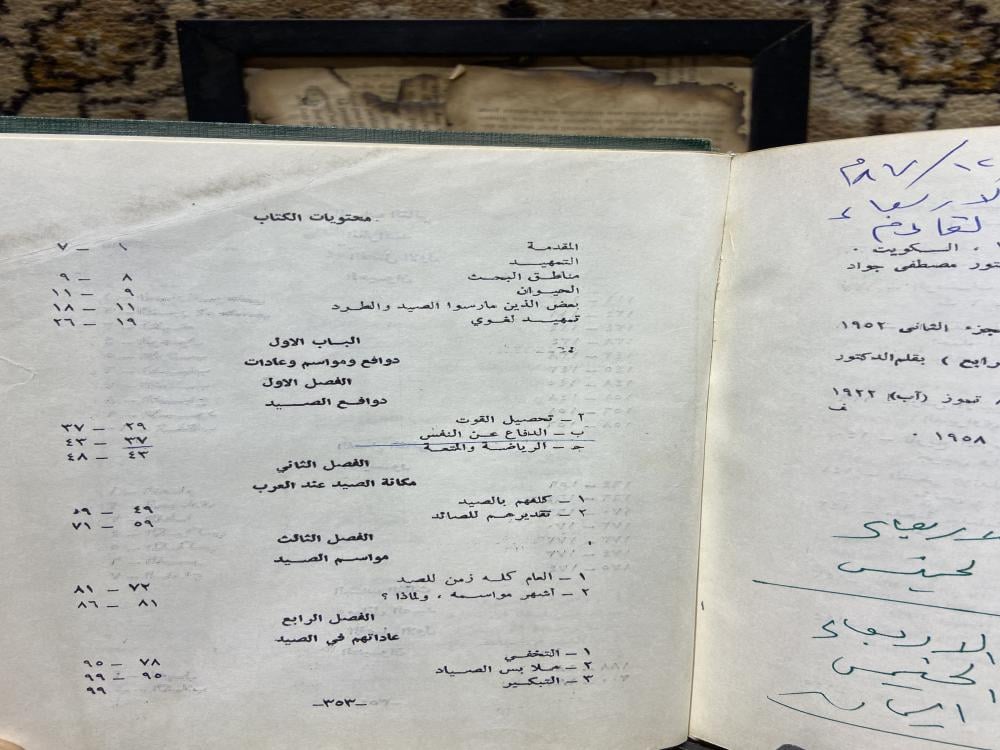 محتويات الكتاب
المقدمة ١ – ٧
التمهيد
مناطق البحث ٨ – ٩
الحيوان ٩ – ١١
بعض الذين مارسوا الصيد والطرد ١١ – ١٨
تمهيد لغوي ١٩ – ٢٦
الباب الاول
دوافع ومواسم وعادات
الفصل الاول
دوافع الصيد
٢ – تحصيل القوت ٢٩ – ٣٧
ب – الدفاع عن النفس ٣٧ – ٤٣
جـ – الرياضة والمتعة ٤٣ – ٤٨
الفصل الثاني
مكانة الصيد عند العرب
١ – كلفهم بالصيد ٤٩ – ٥٩
٢ – تقديرهم للصائد ٥٩ – ٧١
الفصل الثالث
مواسم الصيد
١ – العام كله زمن للصيد ٧٢ – ٨١
٢ – أشهر مواسمه ، ولماذا ؟ ٨١ – ٨٦
الفصل الرابع
عاداتهم في الصيد
١ – التخفي ٧٨ – ٩٥
٢ – ملابس الصياد ٩٥ – ٩٩
٣ – التبكير ٩٩
–٣٥٣–
الاربعاء
القادم
، السكويت ٠
تور مصطفى جواد
جزء الثانى ١٩٥٢
رابع ) بقلم الدكتور
تموز (آب) ١٩٢٢
ف
١٩٥٨ ٠
الاربعاء
لخميس
الاربعاء
الخميس